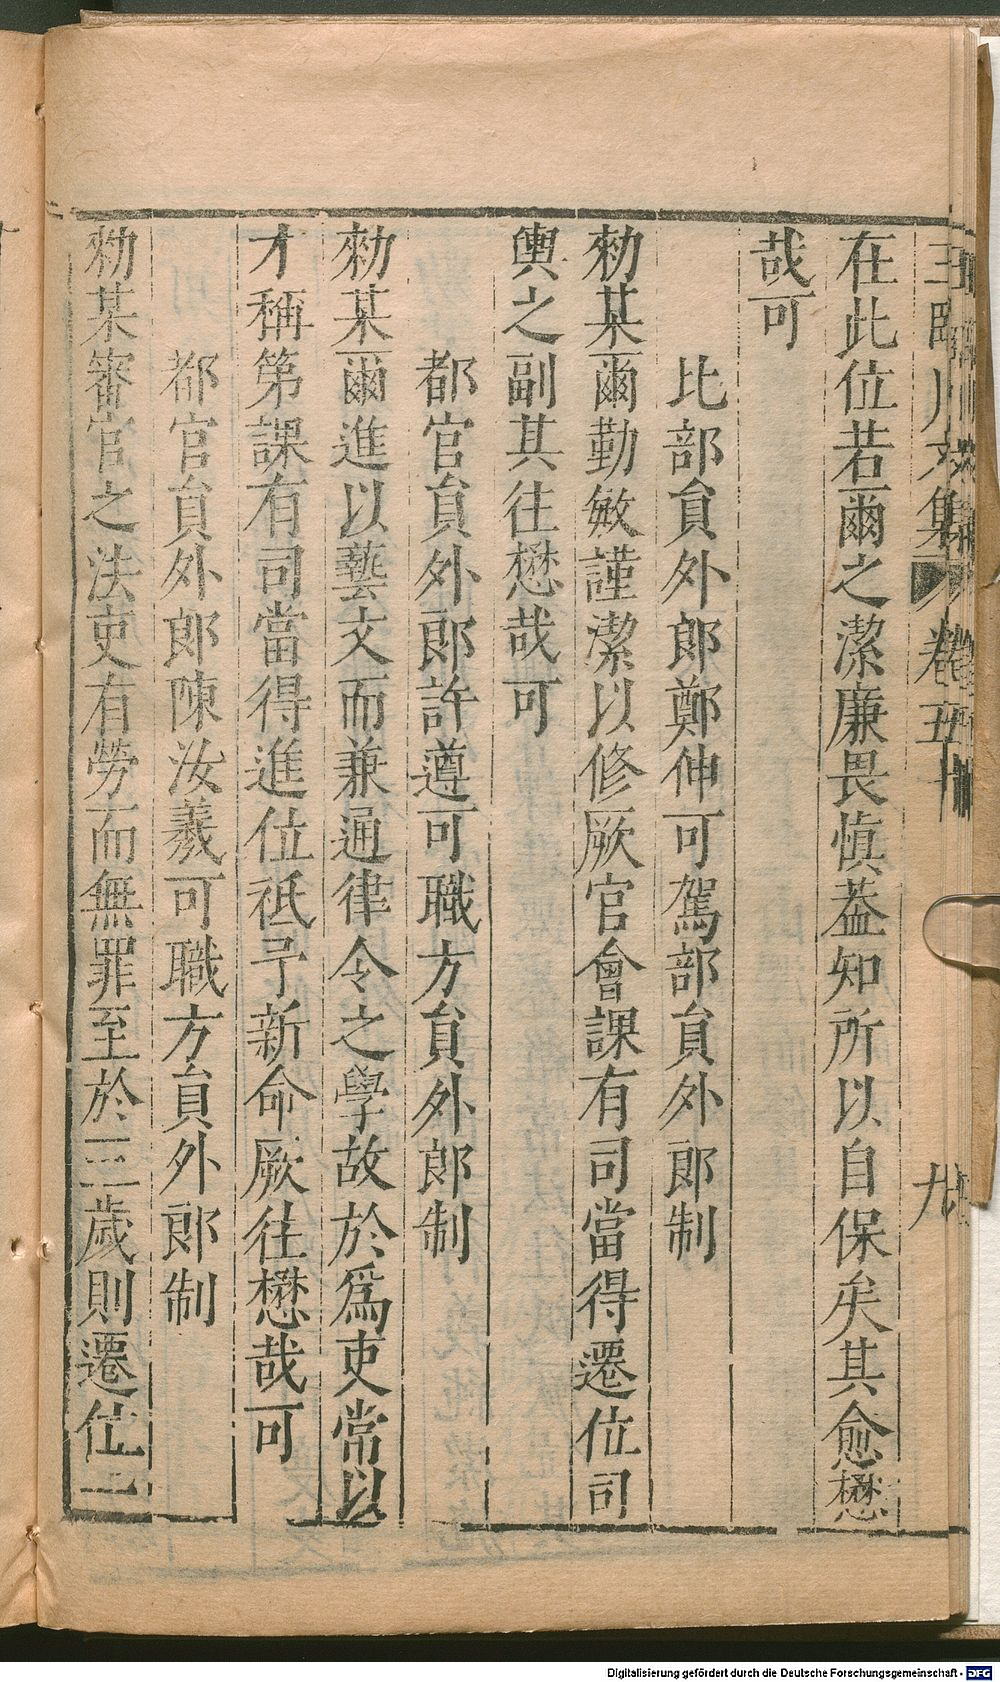 王臨川文集 卷五十 九
在此位若爾之潔廉畏慎葢知所以自保矣其愈懋
哉可
比部員外郎鄭伸可駕部員外郎制
勑某爾勤敏謹潔以修厥官會課有司當得遷位司
輿之副其往懋哉可
都官員外郎許遵可職方員外郎制
勑某爾進以藝文而兼通律令之學故於爲吏常以
才稱第課有司當得進位祗予新命厥往懋哉可
都官員外郎陳汝羲可職方員外郎制
勑某審官之法吏有勞而無罪至於三歲則遷位二
Digitalisierung gefördert durch die Deutsche Forschungsgemeinschaft - DFG